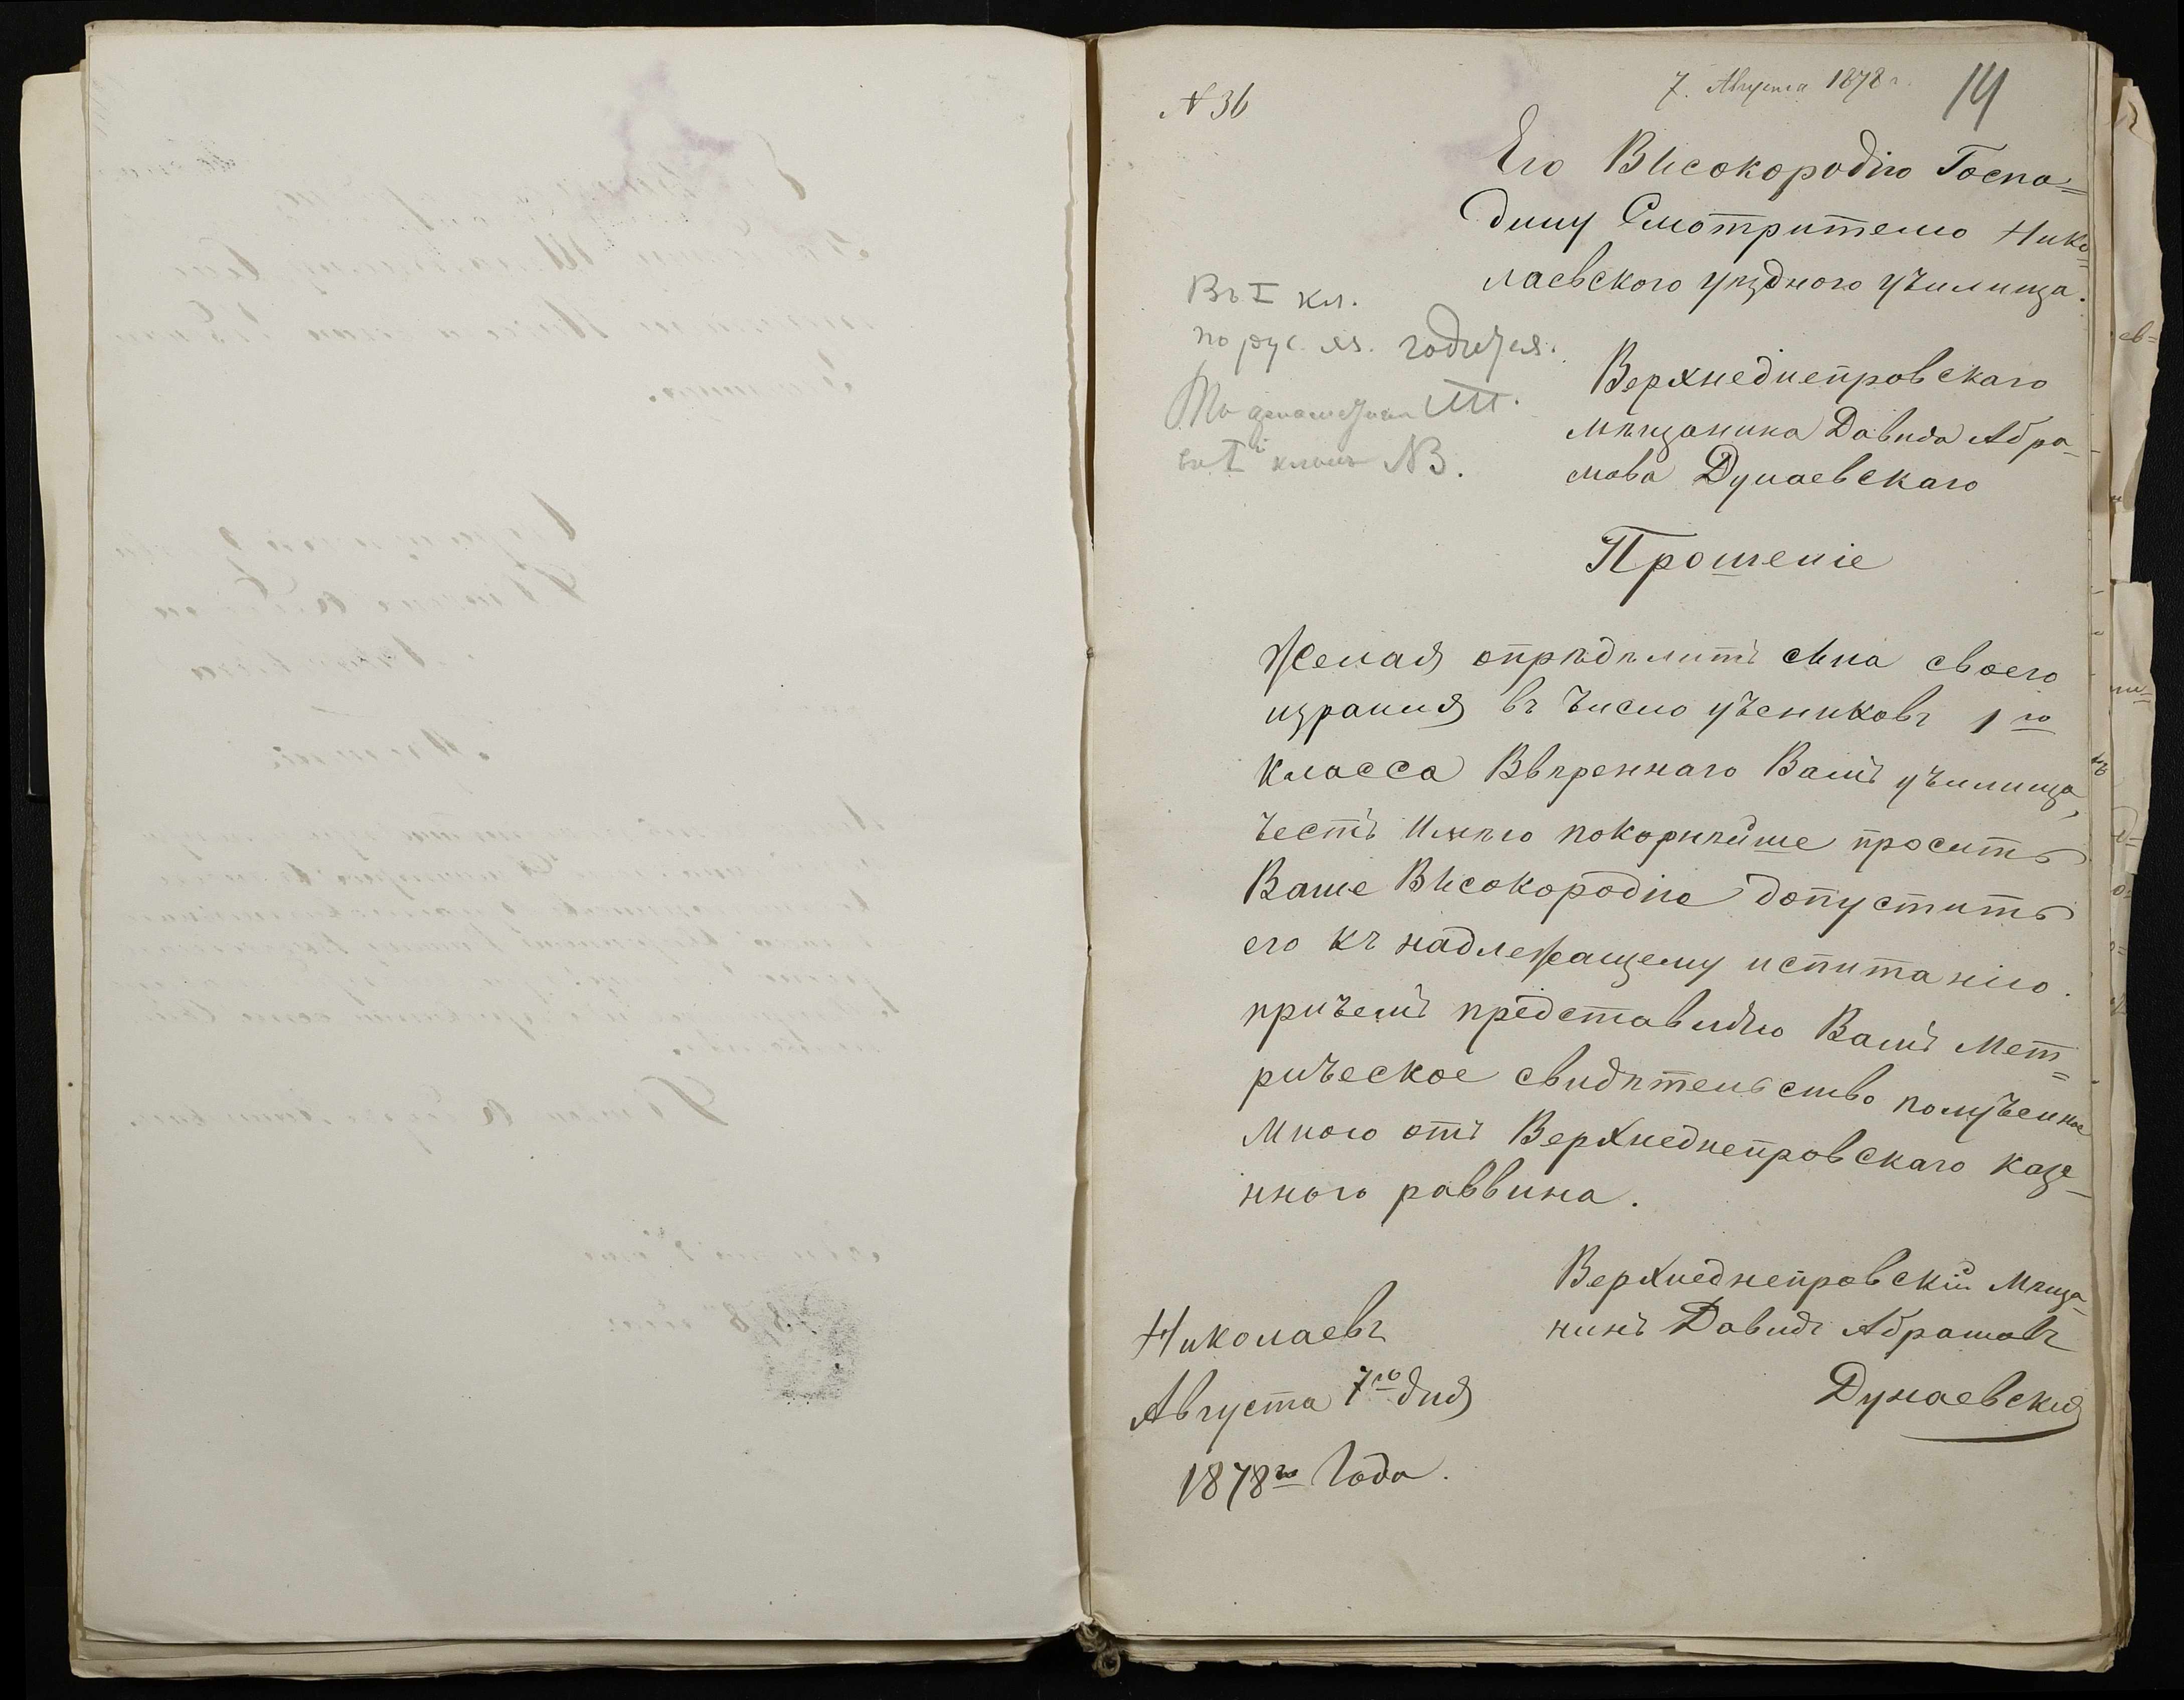 N 36
7. Августа 1878 г.
14
Его Високородію Госпо=
дину Смотрителю Нико=
лаевского уѣздного училища.
Въ I кл.
по рус. яз. годится.
III.
въ I классъ №3.
Верхнеднепровскаго
мѣщанина Давида Абра-
мова Дунаевскаго
Прошеніе
Желая опрѣдѣлить сына своего
израиля въ число учениковъ 1го
класса Ввѣреннаго Вамъ училища,
честь Имѣю покорнѣйше просить
Ваше Високородіе допустить
его къ надлежащему испитанію.
причемъ представляю Вамъ Мет=
рическое свидѣтельство полученное
Мною отъ Верхнеднепровскаго казе-
нного раввина.
Верхнеднепровскій Мѣща-
нинъ Давидъ Абрамовъ
Дунаевскій
Николаевъ
Августа 7го дня
1878го Года.